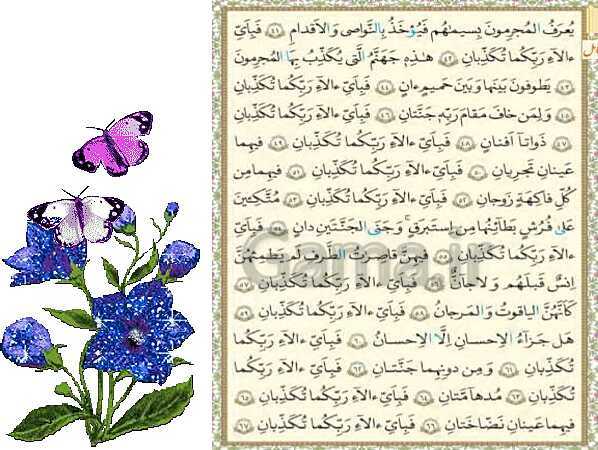 یُعرَفُ المُجرِمونَ بِسیمٰهُم فَیُؤخَذُ بِالنَّواصی وَ الاَقدامِ ﴿٤١﴾ فَبِاَیِّ
ءالآءِ رَبِّکُما تُکَذِّبانِ ﴿٤٢﴾ هٰذِهٖ جَهَنَّمُ الَّتی یُکَذِّبُ بِهَا المُجرِمونَ
﴿٤٣﴾ یَطوفونَ بَینَها وَ بَینَ حَمیمٍ ءانٍ ﴿٤٤﴾ فَبِاَیِّ ءالآءِ رَبِّکُما تُکَذِّبانِ
﴿٤٥﴾ وَ لِمَن خافَ مَقامَ رَبِّهٖ جَنَّتانِ ﴿٤٦﴾ فَبِاَیِّ ءالآءِ رَبِّکُما تُکَذِّبانِ
﴿٤٧﴾ ذَواتآ اَفنانٍ ﴿٤٨﴾ فَبِاَیِّ ءالآءِ رَبِّکُما تُکَذِّبانِ ﴿٤٩﴾ فیهِما
عَینانِ تَجرِیانِ ﴿٥٠﴾ فَبِاَیِّ ءالآءِ رَبِّکُما تُکَذِّبانِ ﴿٥١﴾ فیهِما مِن
کُلِّ فاکِهَةٍ زَوجانِ ﴿٥٢﴾ فَبِاَیِّ ءالآءِ رَبِّکُما تُکَذِّبانِ ﴿٥٣﴾ مُتَّکِـینَ
عَلیٰ فُرُشٍ بَطآئِنُها مِن اِستَبرَقٍ ۚ وَ جَنَی الجَنَّتَینِ دانٍ ﴿٥٤﴾ فَبِاَیِّ
ءالآءِ رَبِّکُما تُکَذِّبانِ ﴿٥٥﴾ فیهِنَّ قاصِراتُ الطَّرفِ لَم یَطمِثهُنَّ
اِنسٌ قَبلَهُم وَ لا جانٌّ ﴿٥٦﴾ فَبِاَیِّ ءالآءِ رَبِّکُما تُکَذِّبانِ ﴿٥٧﴾
کَاَنَّهُنَّ الیاقوتُ وَ المَرجانُ ﴿٥٨﴾ فَبِاَیِّ ءالآءِ رَبِّکُما تُکَذِّبانِ ﴿٥٩﴾
هَل جَزآءُ الاِحسانِ اِلَّا الاِحسانُ ﴿٦٠﴾ فَبِاَیِّ ءالآءِ رَبِّکُما
تُکَذِّبانِ ﴿٦١﴾ وَ مِن دونِهِما جَنَّتانِ ﴿٦٢﴾ فَبِاَیِّ ءالآءِ رَبِّکُما
تُکَذِّبانِ ﴿٦٣﴾ مُدهآمَّتانِ ﴿٦٤﴾ فَبِاَیِّ ءالآءِ رَبِّکُما تُکَذِّبانِ ﴿٦٥﴾
فیهِما عَینانِ نَضّاخَتانِ ﴿٦٦﴾ فَبِاَیِّ ءالآءِ رَبِّکُما تُکَذِّبانِ ﴿٦٧﴾
Gama.ir